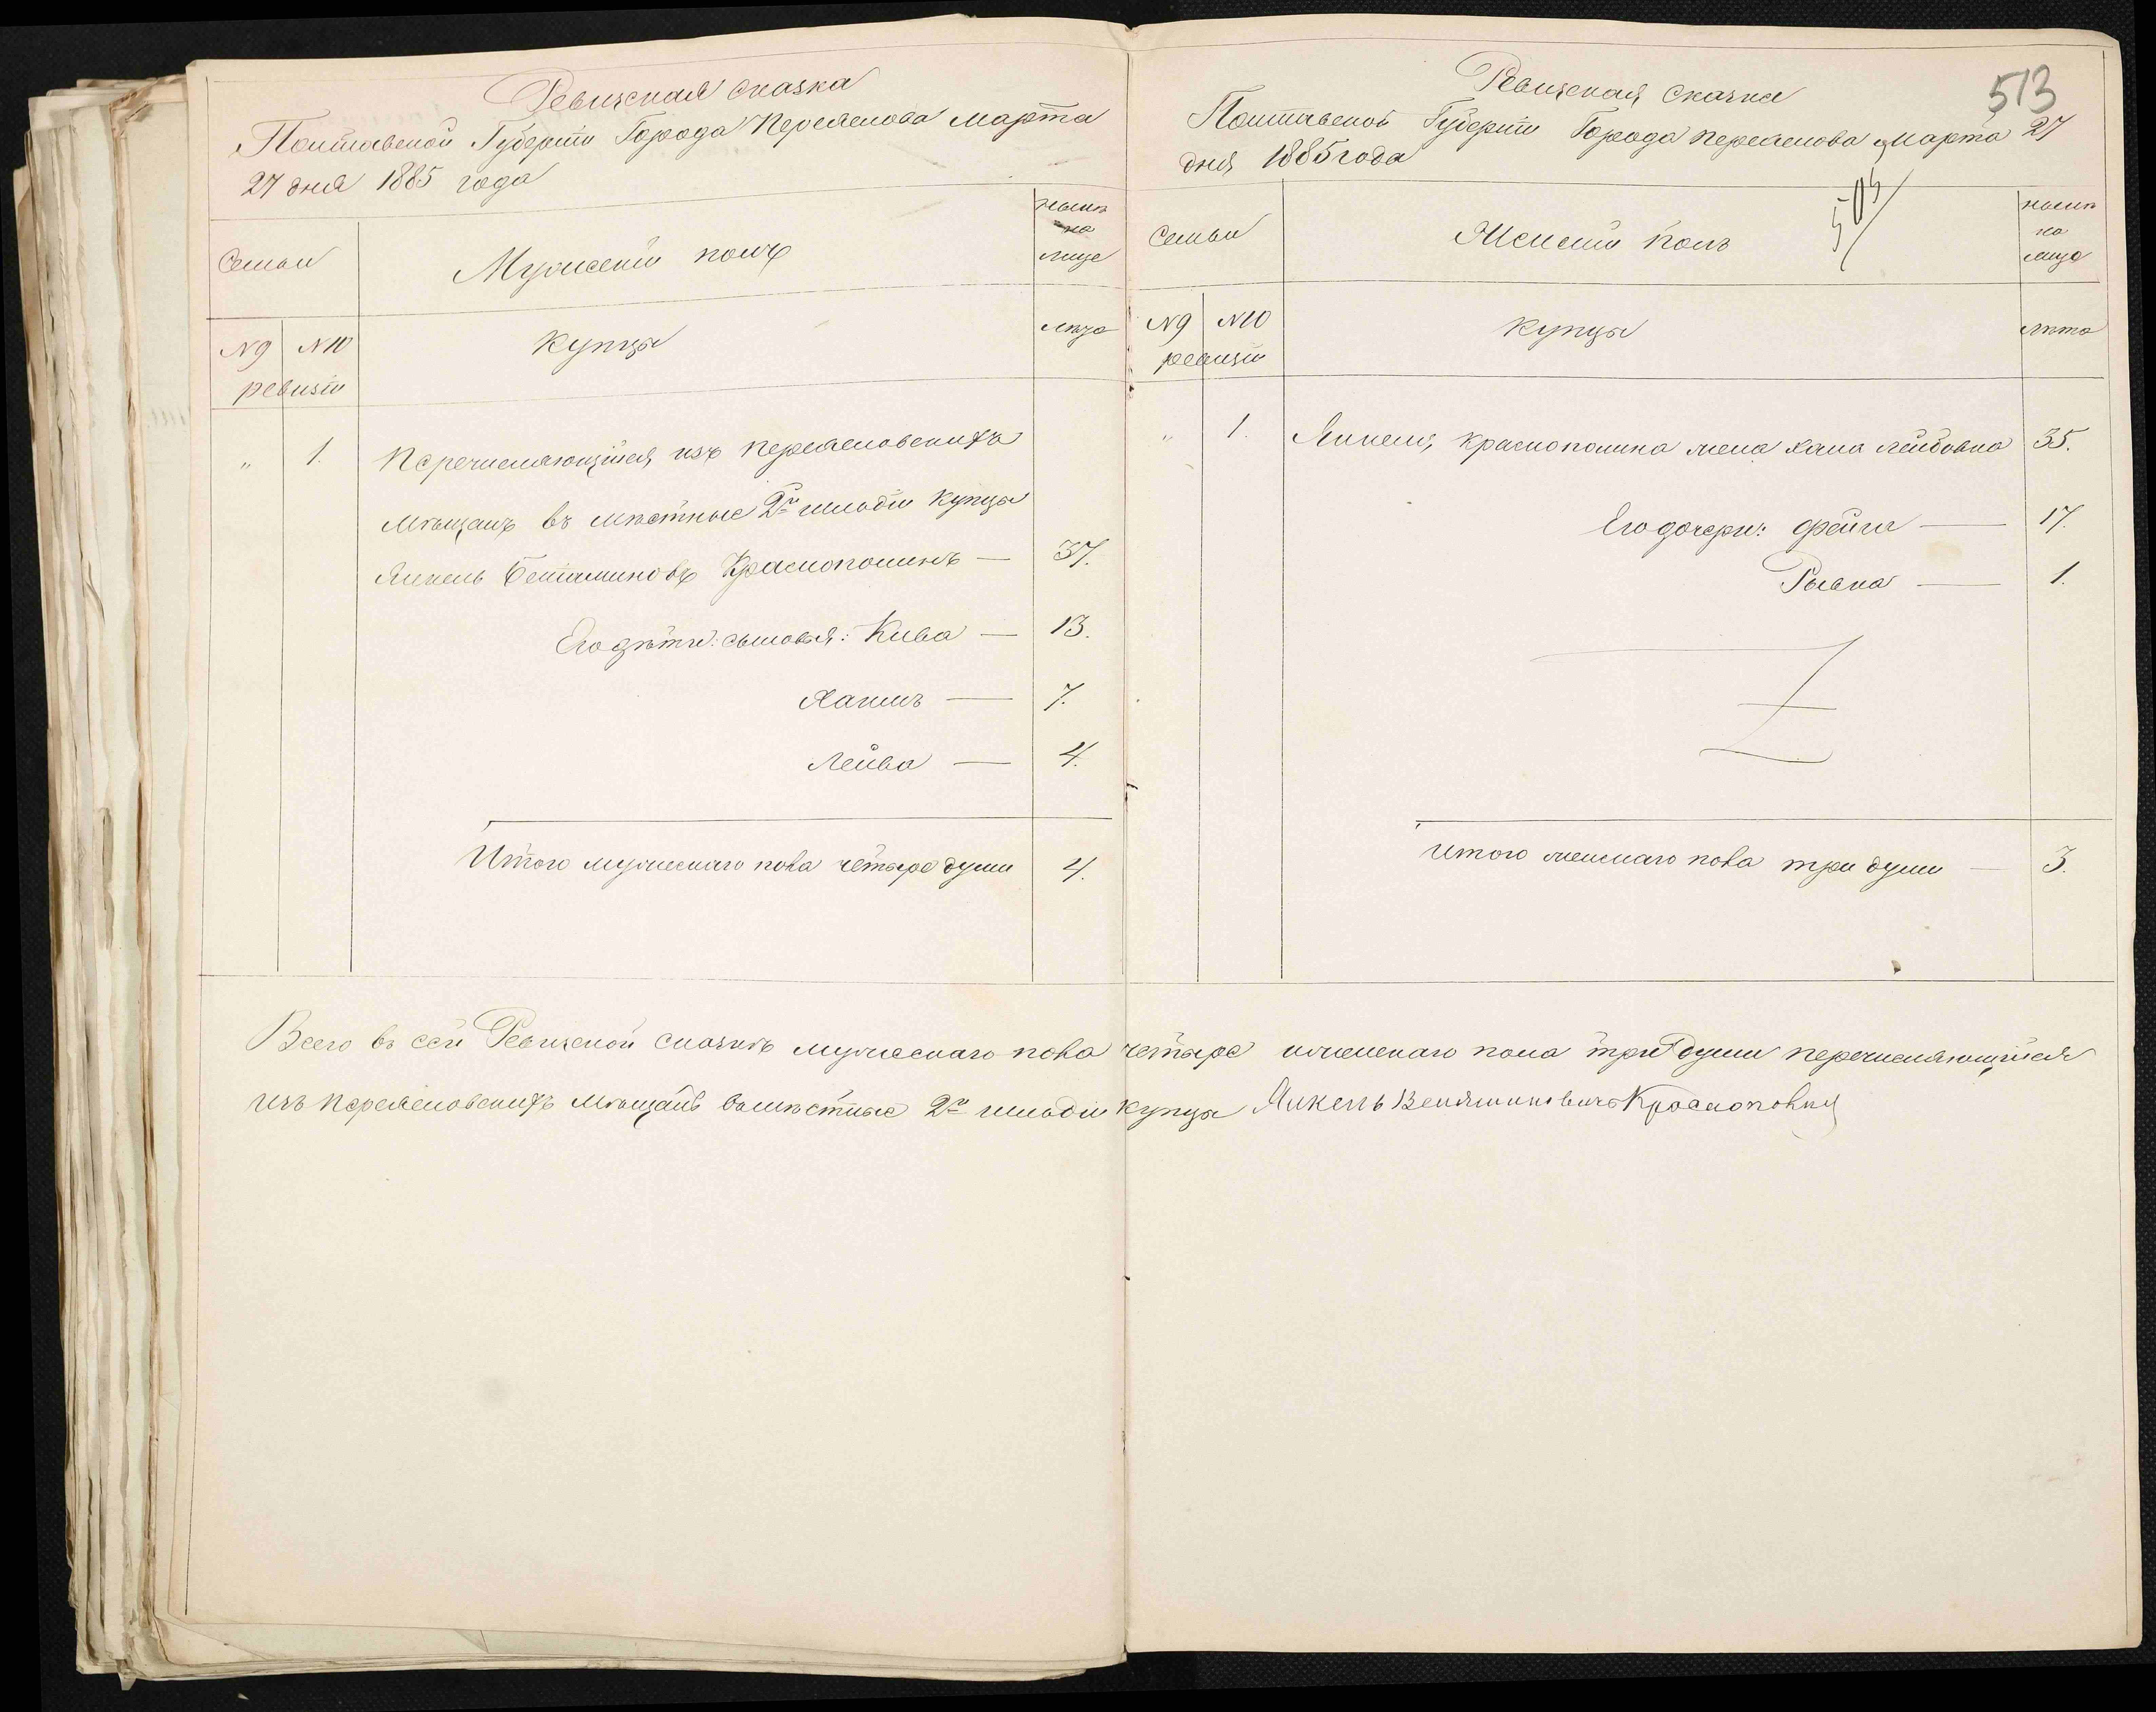 Ревизская сказка
Полтавской Губернiи Города Переяслова Марта
27 дня 1885 года
Семьи
Мужескiй полъ
нынѣ
на
лице
N9 N10
ревизiи
Купцы
лѣта
" 1. Перечисляющiйся изъ Переясловскихъ
Мѣщанъ въ мѣстные 2й гильдiи купцы
Янкель Бенiаминовъ Краснополинъ — 37.
Его дѣти: сыновья: Кива — 13.
Хаимъ — 7.
Лейба — 4.
Итого мужескаго пола четыре души 4.
513
Ревизская Сказка
Полтавской Губернiи Города Переяслова Марта 27
дня 1885 года
505
Семьи
Женскiй полъ
нынѣ
на
лицо
N9 N10
ревизiи
Купцы
лѣта
" 1. Янкеля Краснополина жена Хана Лейбовна 35.
Его дочери: Фейга — 17.
Рывка — 1.
Итого женскаго пола три души — 3.
Всего въ сей Ревизской сказкѣ мужескаго пола четыре и женскаго пола три души перечисляющiйся
изъ Переясловскихъ Мѣщанъ въ мѣстные 2й гильдiи купцы Янкель Веняминовичъ Краснополин